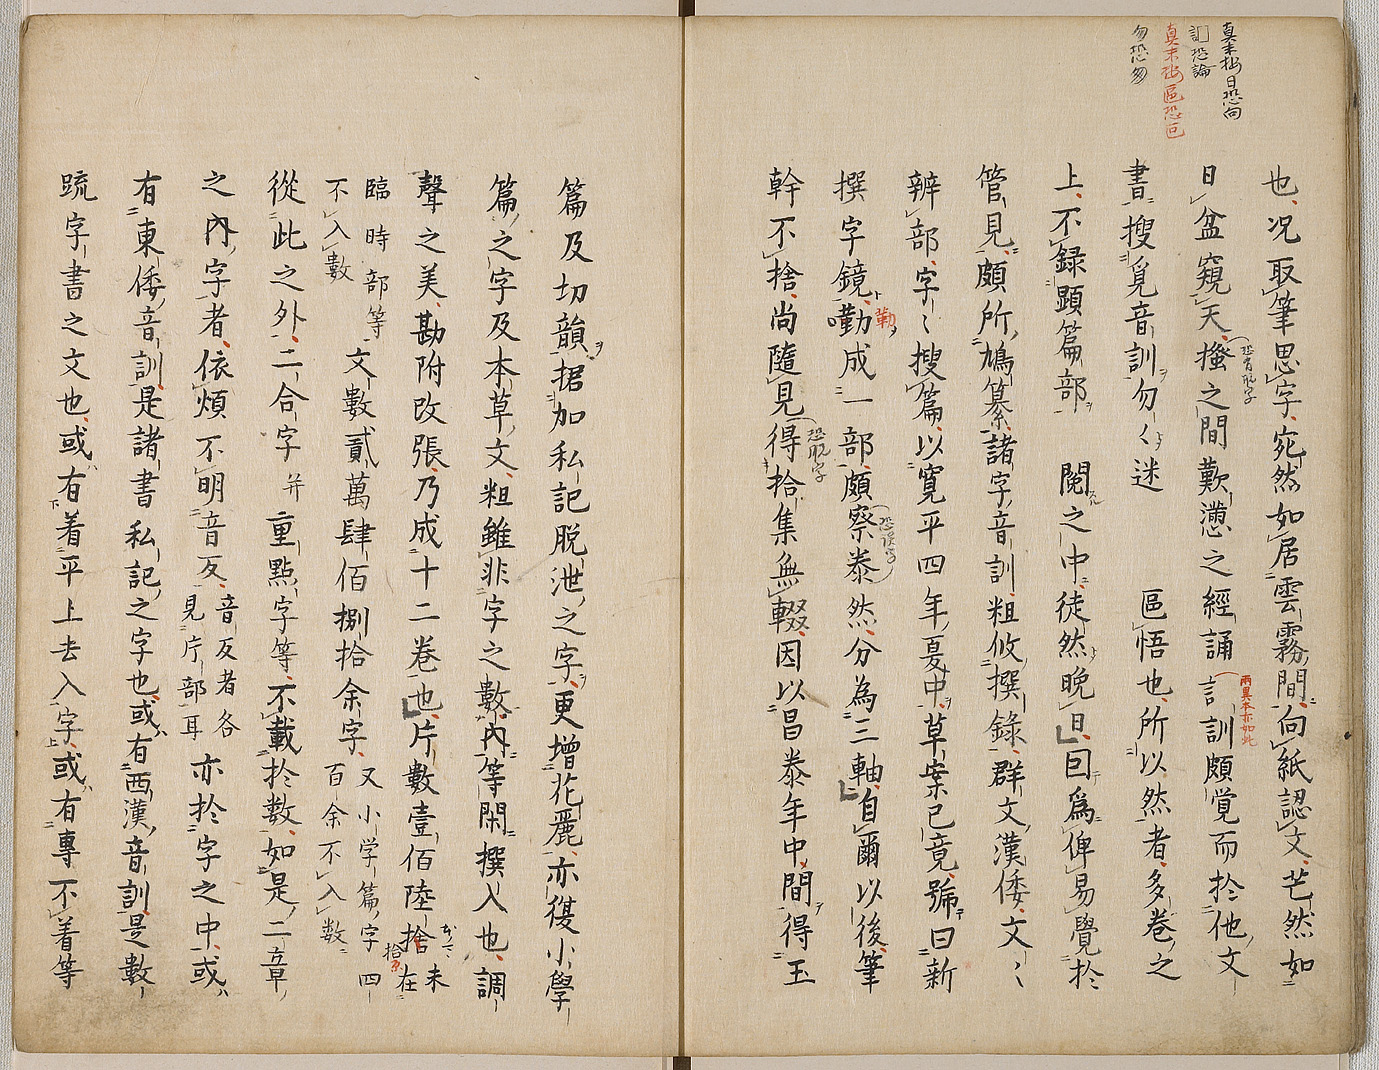 真末按日恐向
訁恐論
真末按區恐叵
勿恐匆
也况取筆思字宛然如居雲霧間向紙認文芒然如
日盆窺天搔之間歎懣之經誦訁訓頗覚而於他文
恐有脱字
兩異本亦如此
書搜覓音訓勿々迷 區悟也所以然者多巻之
上不録顕篇部 閲之中徒然晩日囙爲俾易覺於
管見頗所鳩纂諸字音訓粗攸撰錄群文漢倭文〻
辨部字〻搜篇以寛平四年夏中草案已竟號曰新
撰字鏡嘞成一部頗察泰然分為三軸自爾以後筆
勤
恐誤字
幹不捨尚隨見得拾集無輟因以昌泰年中間得玉
恐脱字
篇及切韻捃加私記脱泄之字更增花麗亦復小學
篇之字及本草文粗雖非字之數内等閑撰入也調
聲之美勘附改張乃成十二巻也片數壹佰陸捨 未在
拾
臨時部等
不入數
文數貳萬肆佰捌拾余字
又小学篇字四
百余不入數
從此之外二合字并重點字等不載於数如是二章
之内字者依煩不明音反
音反者各
見片部耳
亦於字之中或
有東倭音訓是諸書私記之字也或有西漢音訓是數
䟽字書之文也或有着平上去入字或有專不着等